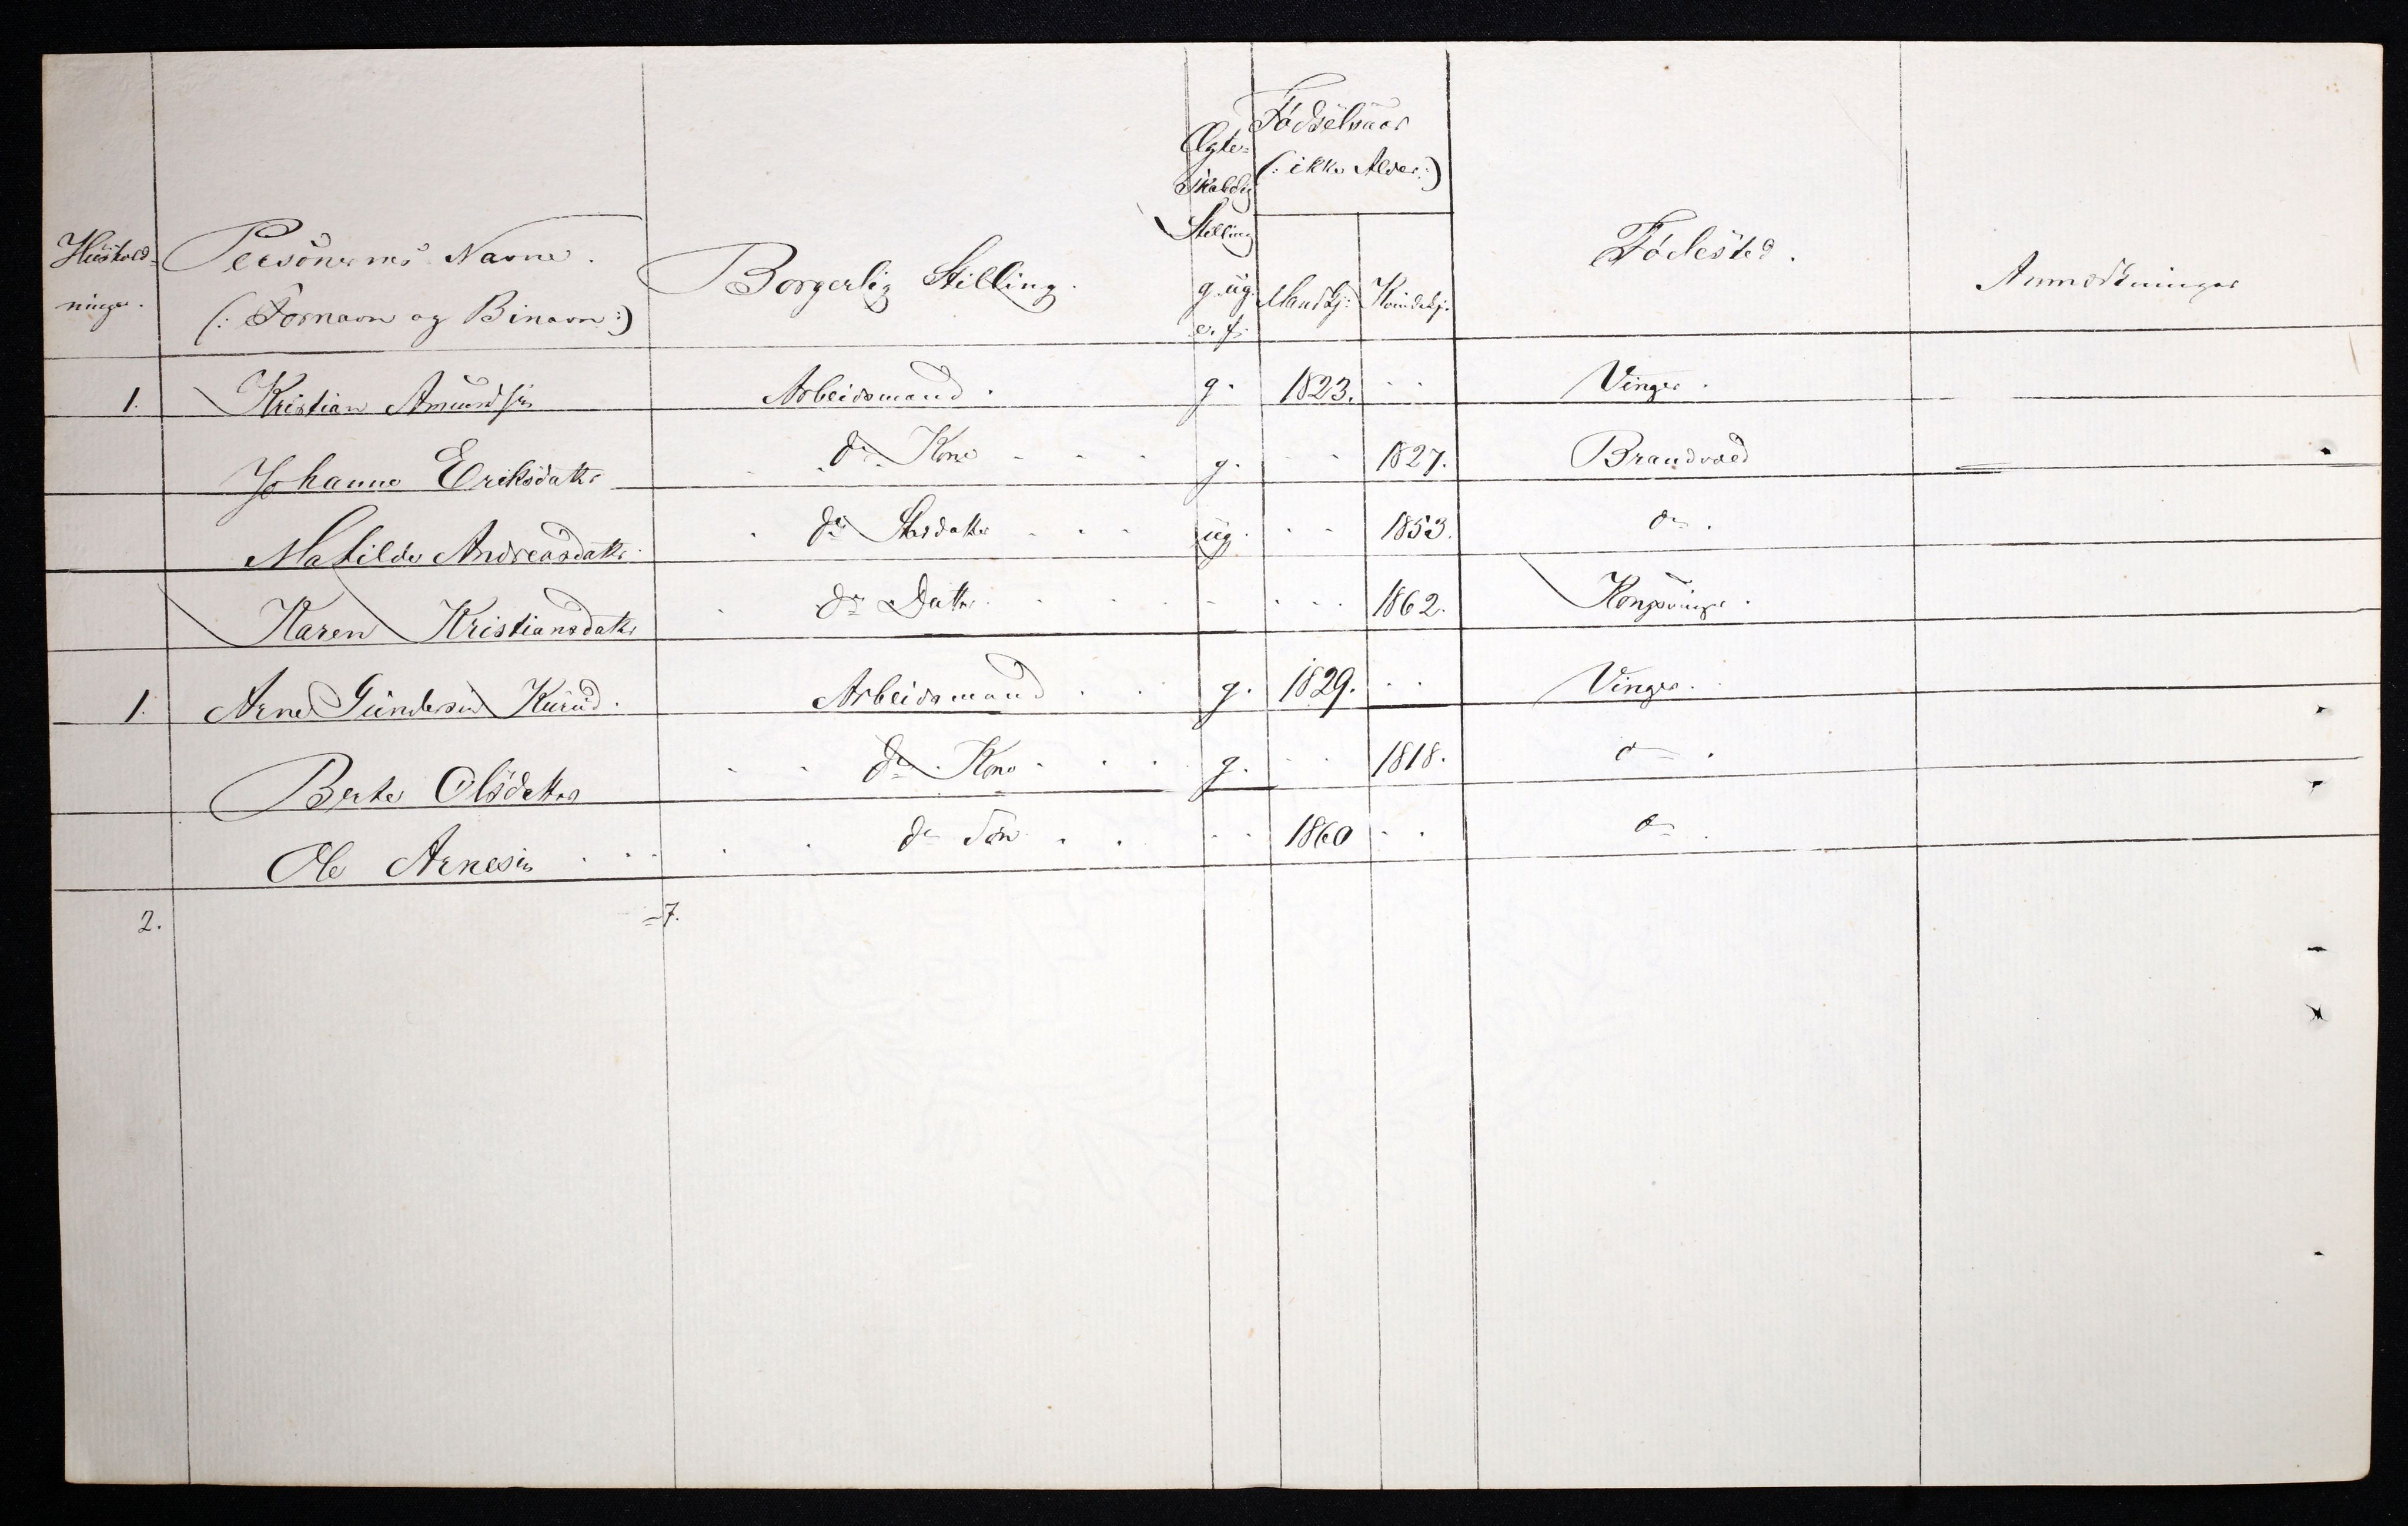 Hushold-
ninger.
Personernes Navne.
(: Fornavn og Binavn :)
Borgerlig Stilling.
Ægte-
skabelig
Stilling
g. ug.
e. f.
Fødselsaar
(: ikke Alder :)
Mandkj: Kvindekj.
Fødested.
Anmærkninger
1. Kristian Amundsen Arbeidsmand. g. 1823. Vinger.
Johanne Eriksdatr ds. Kone g. 1827. Brandvold
Matilde Andreasdatr ds Stedatr ug. 1853. do.
Karen Kristiansdatr ds Datr. 1862. Kongsvinger.
1. Arne Gundersen Kurud. Arbeidsmand g. 1829. Vinger.
Berte Olsdatter ds. Kone g. 1818. do.
Ole Arnesen ds Søn 1860 do.
2. =7.